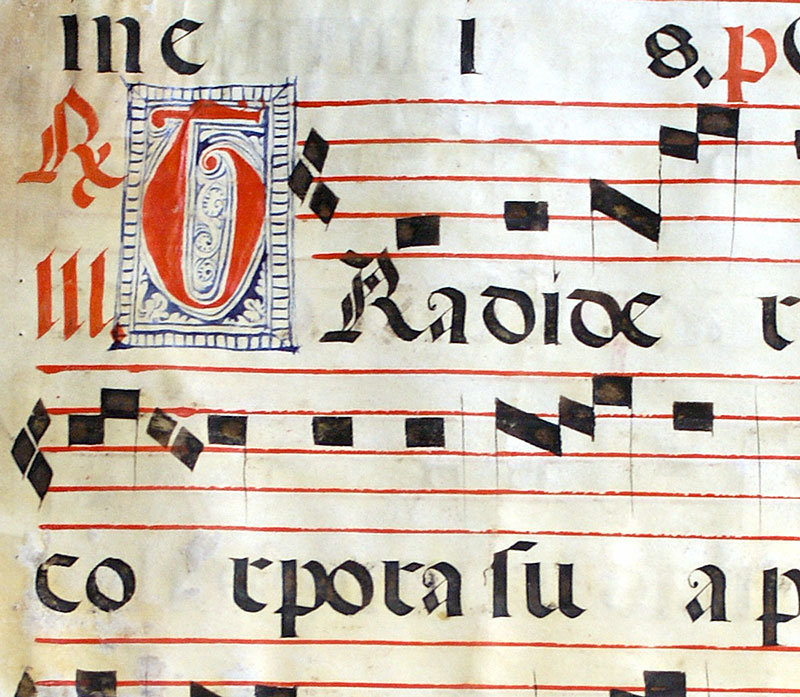 ine i s. p
℟ TRadide r
III
co rpora su a p